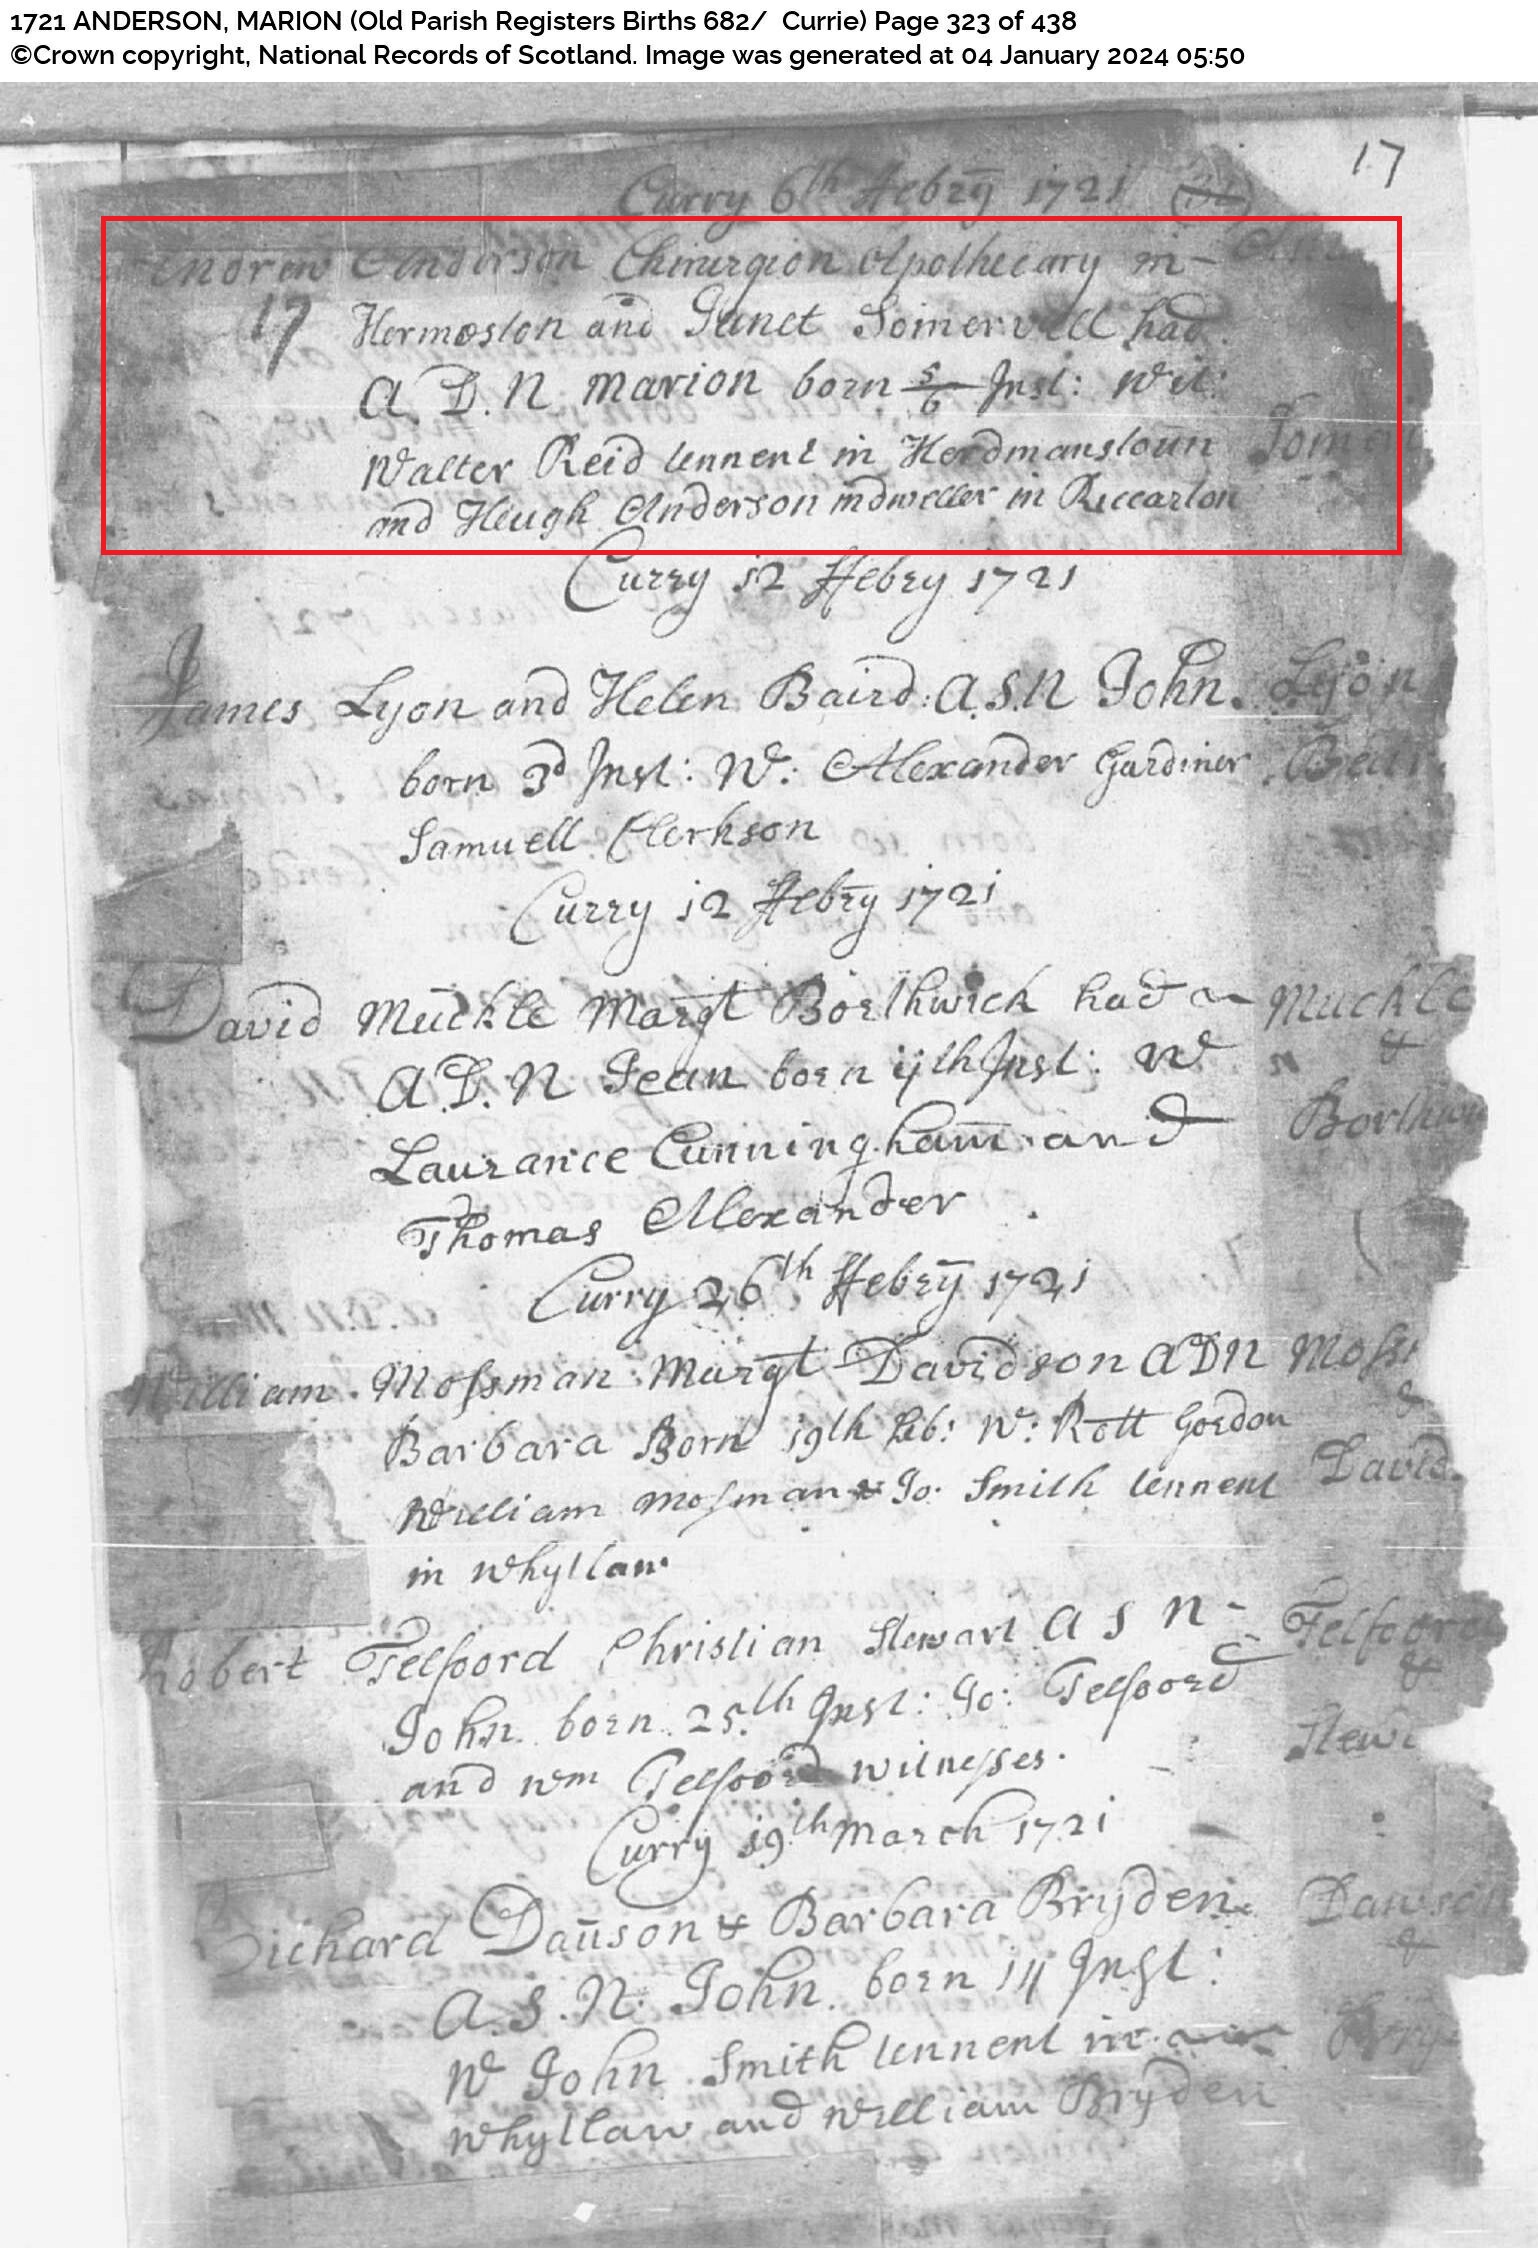 1721 ANDERSON, MARION (Old Parish Registers Births 682/ Currie) Page 323 of 438
©Crown copyright, National Records of Scotland. Image was generated at 04 January 2024 05:50
17
Curry 6th Febry 1721
Andrew Anderson Chirurgion Apothecary in
17 Hermeston and Janet Somervell had
A D. N Marion born 5/6 Inst: Wit:
Walter Reid tennent in Herdmanstoun
and Heugh Anderson indweller in Riccarton
Curry 12 Febry 1721
James Lyon and Helen Baird: A.S.N John. Lyon
born 3d Inst: W: Alexander Gardiner
Samuell Clerkson
Curry 12 Febry 1721
David Muckle Margt Borthwick had Muckle
A.D. N Jean born 11th Inst: W &
Laurance Cunningham and
Thomas Alexander
Curry 26th Febry 1721
William Mossman Margt Davidson A D N
Barbara Born 19th Feb: W: Rott Gordon &
William Mosman & Jo. Smith tennent David
in Whytlaw
Robert Telfoord Christian Stewart A S N - Telfoord
John born 25th Inst: Jo: Telfoord &
and Wm Telfoord witnesses.
Curry 19th March 1721
Richard Dauson & Barbara Bryden Dawson
A. S. N. John. born 14 Inst: &
W John Smith tennent in
Whytlaw and William Bryden